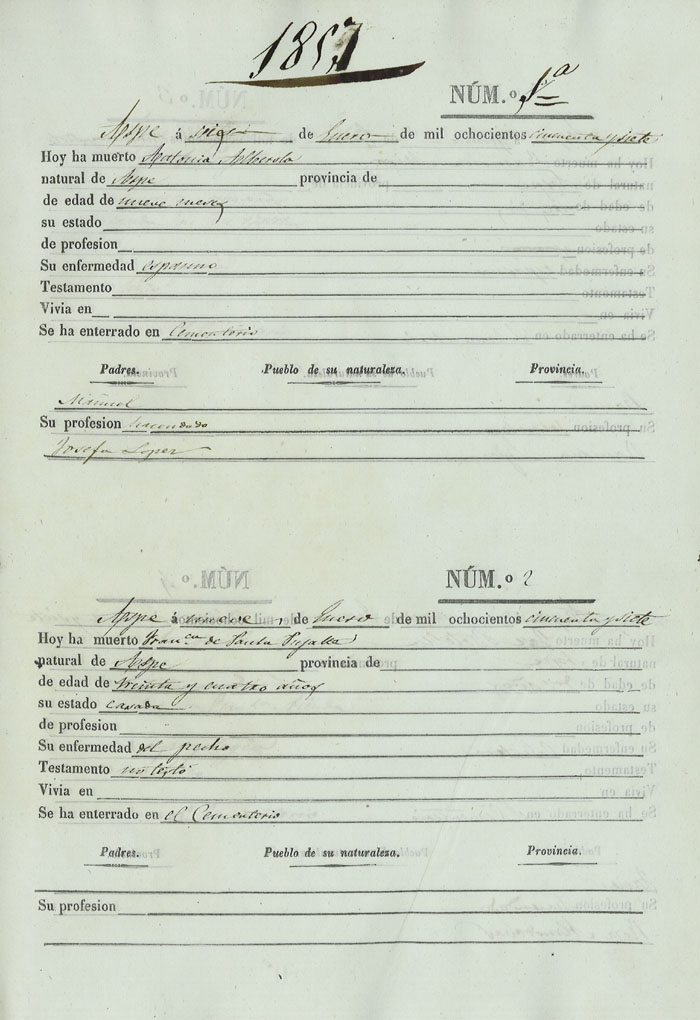 1857
NÚM.º 1ª
Aspe á de Enero de mil ochocientos cincuenta y siete
Hoy ha muerto Antonia Alberola
natural de Aspe provincia de
de edad de nueve meses
su estado
de profesion
Su enfermedad espasmo
Testamento
Vivia en
Se ha enterrado en Cementerio
Padres. Pueblo de su naturaleza. Provincia.
Manuel
Su profesion hacendado
Josefa Lopez
NÚM.º 2
Aspe á nueve de Enero de mil ochocientos cincuenta y siete
Hoy ha muerto Franca de Paula
natural de Aspe provincia de
de edad de treinta y cuatro años
su estado casada
de profesion
Su enfermedad del pecho
Testamento no testó
Vivia en
Se ha enterrado en el Cementerio
Padres. Pueblo de su naturaleza. Provincia.
Su profesion